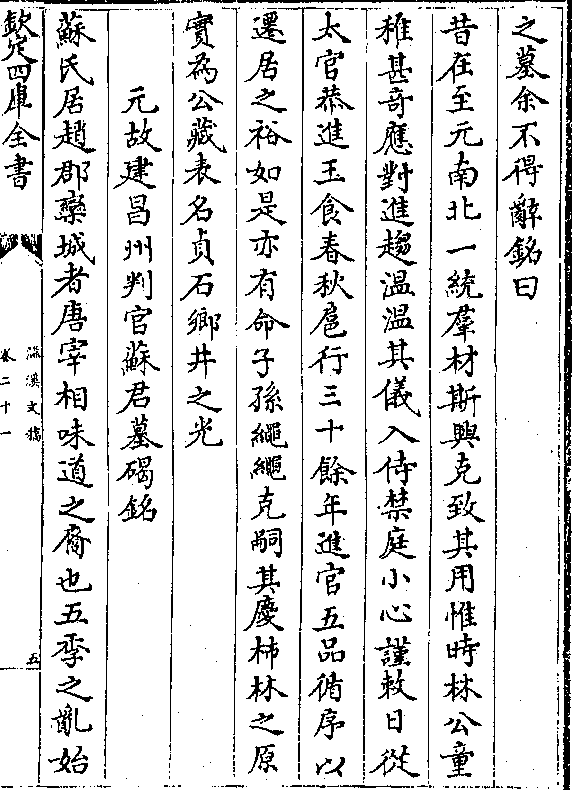 之墓余不得辭銘曰
昔在至元南北一統羣材斯興克致其用惟時林公童
稚甚竒應對進趨温温其儀入侍禁庭小心謹敕日從
太官恭進玉食春秋扈行三十餘年進官五品循序以
遷居之裕如是亦有命子孫繩繩克嗣其慶柿林之原
實為公藏表名貞石鄉井之光
元故建昌州判官蘇君墓碣銘
蘇氏居趙郡欒城者唐宰相味道之裔也五季之亂始
欽定四庫全書
滋溪文稿
卷二十一
五